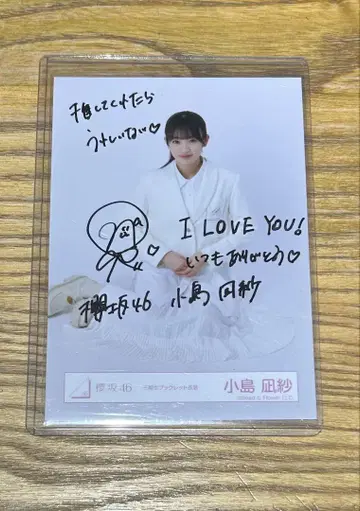 推してくれたら
うれしいない♡
I LOVE YOU!
いつもありがとう♡
櫻坂46 小島凪紗
櫻坂46
小島 凪紗